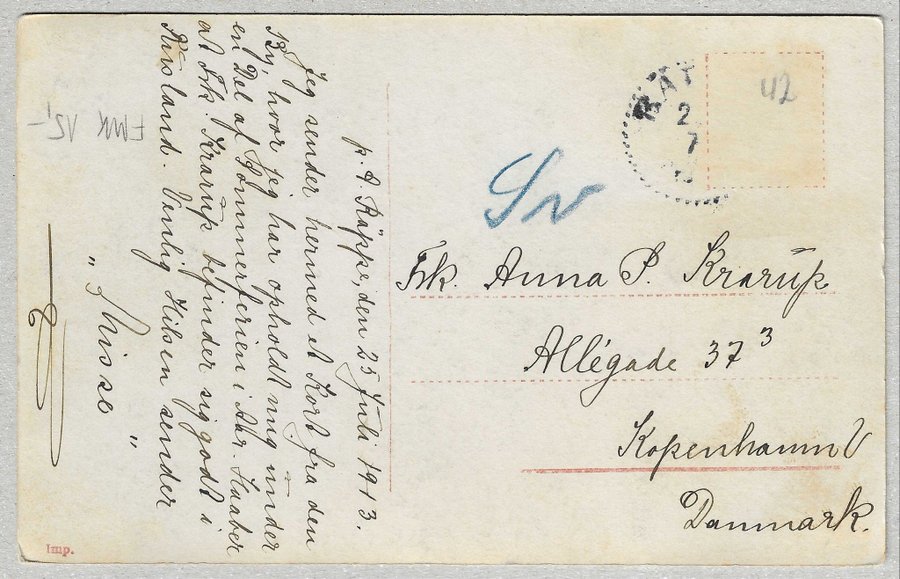 p. t. Räppe, den 25 Juli 1913.
Jeg sender hermed et Kort fra den
By, hvor jeg har opholdt mig under
en Del af Sommerferien i Aar. Haaber
at Frk. Krarup befinder sig godt i
Rusland. Venlig Hilsen sender
" Nisse "
FMK 15,-
Imp.
42
RÄP
2
7
Sv
Frk. Anna P. Krarup
Allégade 37 3
Kopenhamn V
Danmark.